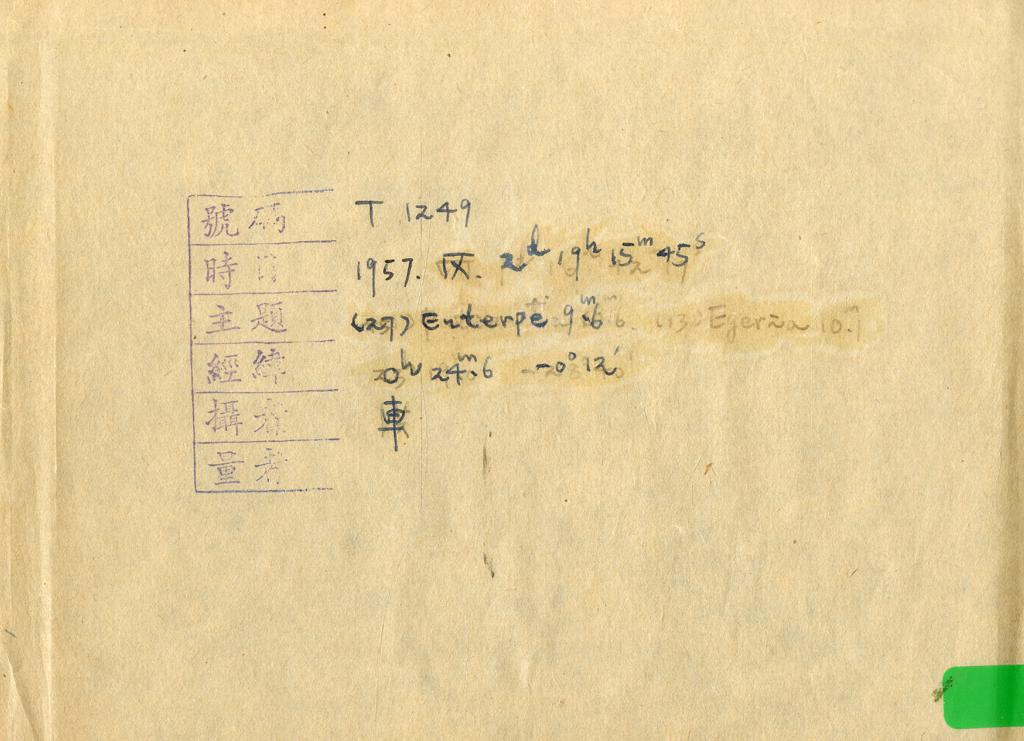 號碼 T 1249
時日 1957. IX. 2ᵈ 19ʰ 15ᵐ 45ˢ
主題 (27) Euterpe 9ᵐ.6 (13) Egeria 10.1
經緯 0ʰ 24ᵐ.6 -0° 12'
攝者 車
量者